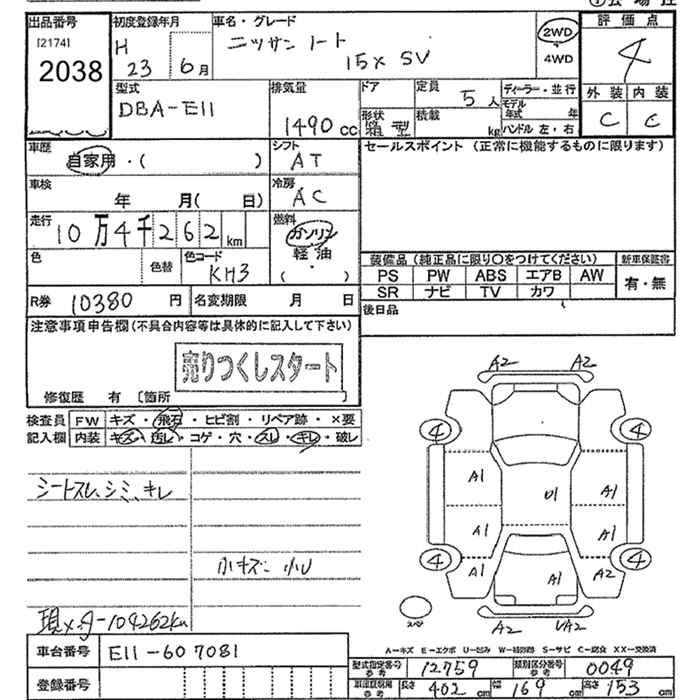 出品番号 初度登録年月 車名・グレード 評価点
[2174] H 23 6月 ニッサン ノート 2WD 4
2038 15X SV 4WD 外装 内装
型式 排気量 ドア 定員 5人 ディーラー・並行 C C
DBA-E11 1490cc 形状 箱型 積載 kg モデル年式 年
ハンドル 左・右
車歴 シフト セールスポイント (正常に機能するものに限ります)
自家用・( ) AT
車検 冷房
年 月( 日) AC
走行 燃料
10万4千262km ガソリン
軽油
色 色替 色コード ・
KH3 ( )
装備品 (純正品に限り○をつけてください) 新車保証書
PS PW ABS エアB AW 有・無
SR ナビ TV カワ
R券 10380円 名変期限 月 日 後日品
注意事項申告欄(不具合内容等は具体的に記入して下さい)
売りつくしスタート
修復歴 有 [箇所 ]
検査員 FW キズ・飛石・ヒビ割・リペア跡・×要
記入欄 内装 キズ・汚レ・コゲ・穴・スレ・キレ・破レ
シートスレ、シミ、キレ
小キズ 小U
現メーター104262km
A2 A2
4 4
A1 U1 A1
A1 A1
A1 A1 A2
4 4
A2 UA2
車台番号 E11-607081
A-キズ E-エクボ U-凹み W-補修跡 S-サビ C-腐食 XX-交換済
登録番号
型式指定番号 参考 12759 類別区分番号 参考 0049
長さ 402cm 幅 169cm 高さ 153cm